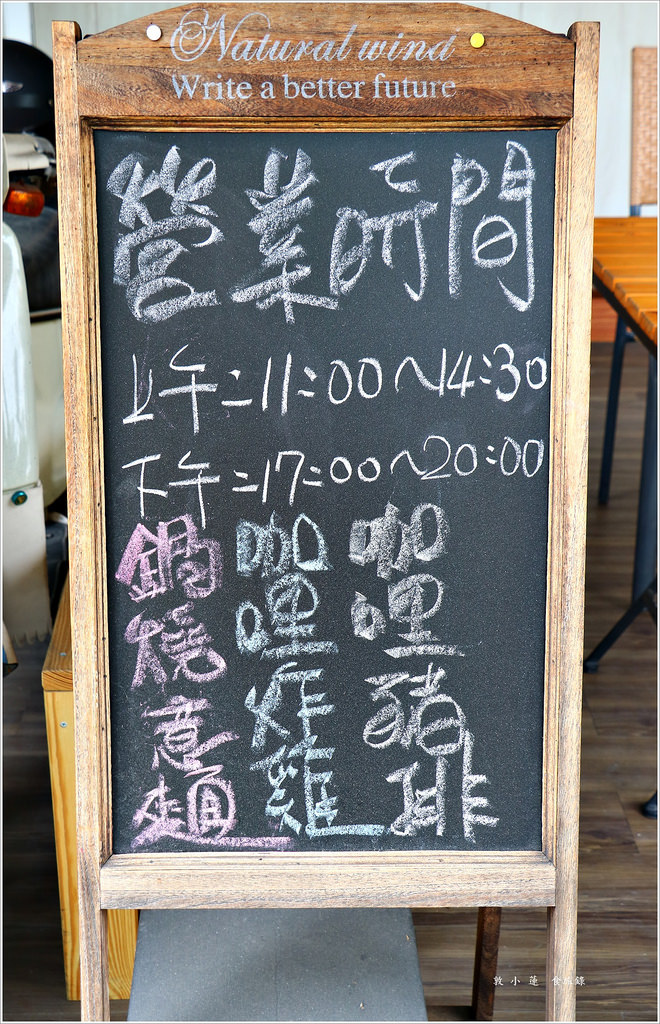 Natural wind
Write a better future
營業時間
上午:11:00~14:30
下午:17:00~20:00
鍋燒意麵
咖哩炸雞
咖哩豬排
敦小蓮 食旅錄